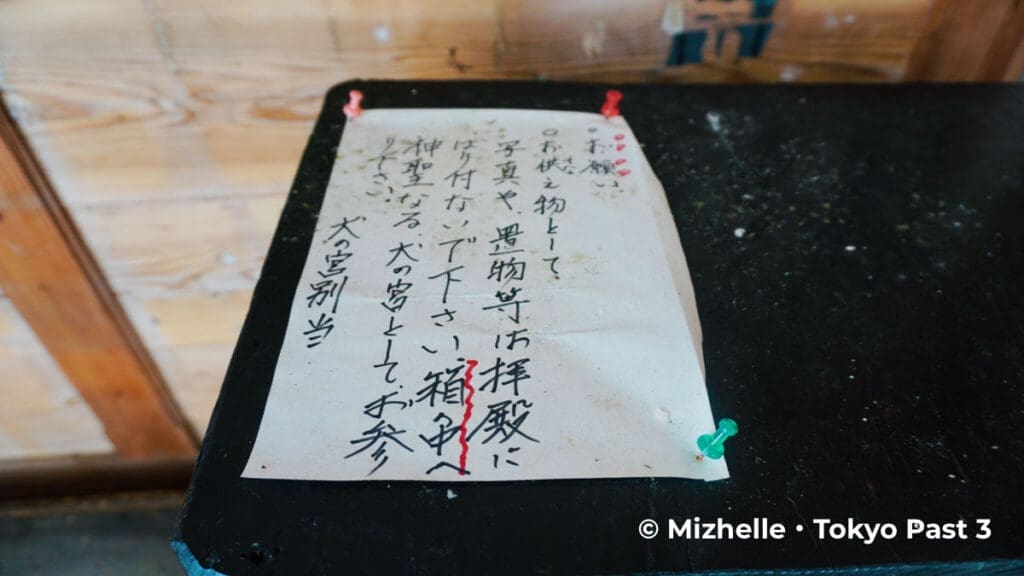 ・お願い
○お供え物として、
写真や、置物等は拝殿に
はり付ないで下さい、箱の中へ
神聖なる、犬の宮として、お参
り下さい。
犬の宮別当
© Mizhelle・Tokyo Past 3